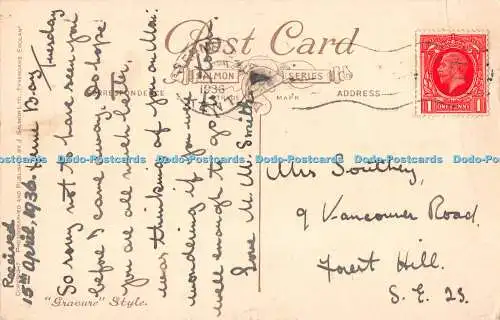 Post Card
SALMON SERIES
CORRESPONDENCE
TRADE MARK
ADDRESS
1936
1 ONE PENNY 1
Mrs Southey,
9 Vancouver Road,
Forest Hill.
S. E. 23.
Bay
Tuesday
So sorry not to have seen you
before I came away. Do hope
you are all much better,
was thinking of you on Mon:
wondering if you went
well enough to go to
Love M. M. Smith.
Received
15th April, 1936.
"Gravure" Style.
COPYRIGHT PHOTOGRAPHED AND PUBLISHED BY J. SALMON LTD., SEVENOAKS, ENGLAND
Dodo-Postcards Dodo-Postcards Dodo-Postcards Dodo-Postcards Dodo-Postcards